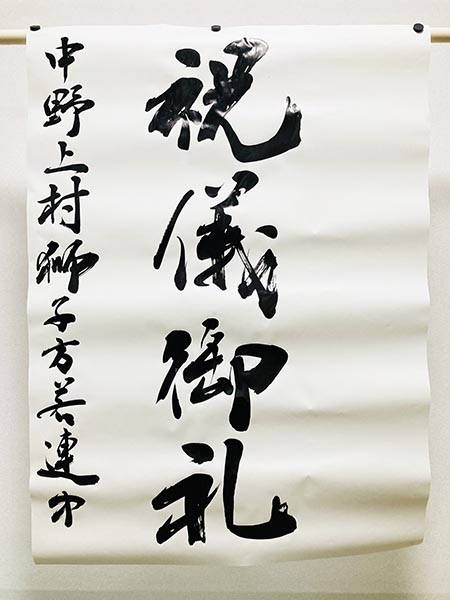 祝儀御礼
中野上村獅子方若連中